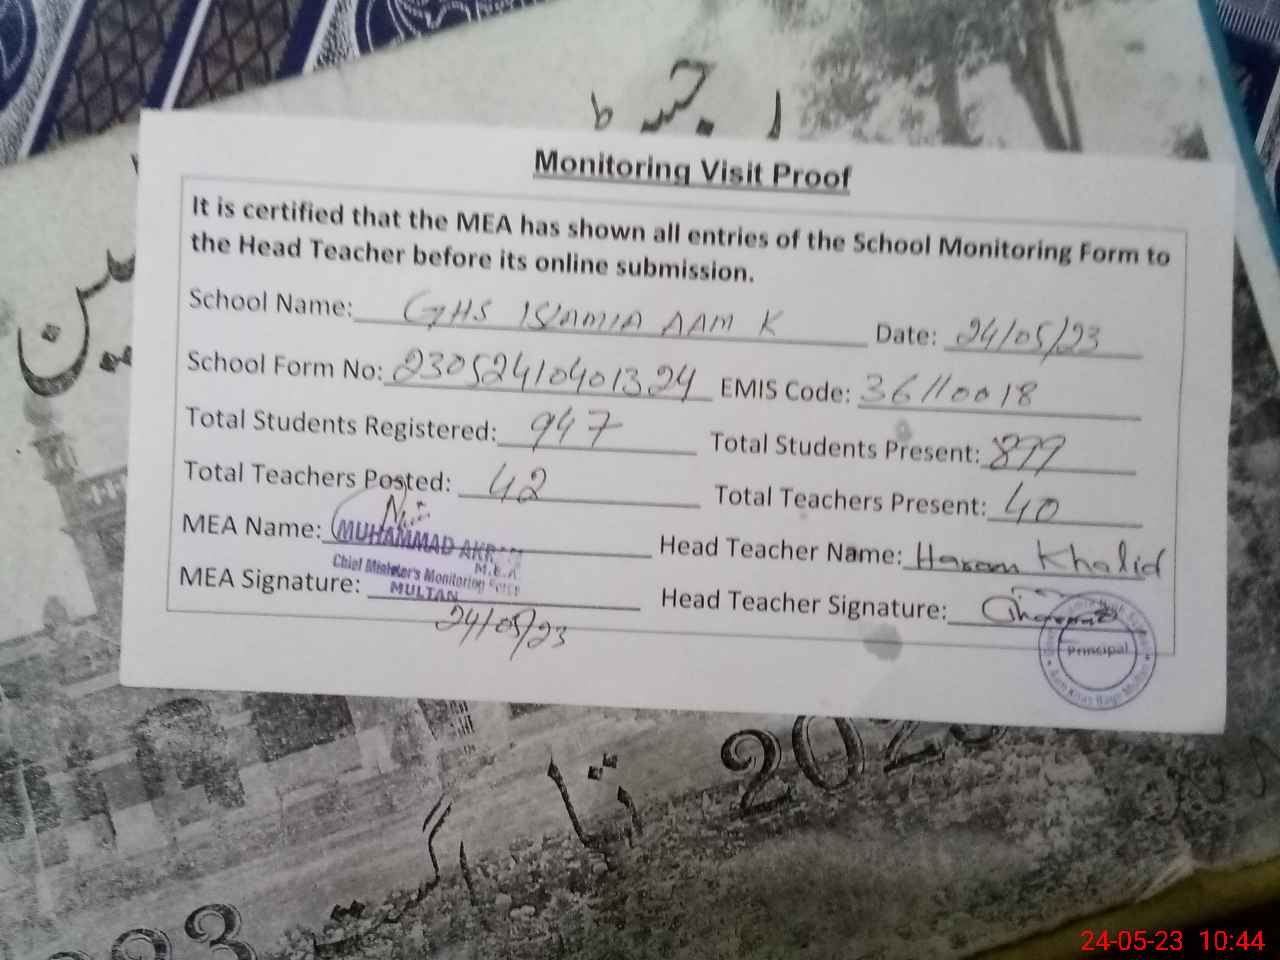 Monitoring Visit Proof
It is certified that the MEA has shown all entries of the School Monitoring Form to
the Head Teacher before its online submission.
School Name: GHS ISLAMIA AAM K Date: 24/05/23
School Form No: 23052410401324 EMIS Code: 36110018
Total Students Registered: 947 Total Students Present: 899
Total Teachers Posted: 42 Total Teachers Present: 40
MEA Name: MUHAMMAD Head Teacher Name: Haram Khalid
M.E.A
Chief Minister's Monitoring Force
MULTAN
MEA Signature: Head Teacher Signature:
24/05/23
Principal
Aam Khas Bagh Multan
تا
اگست
24-05-23 10:44